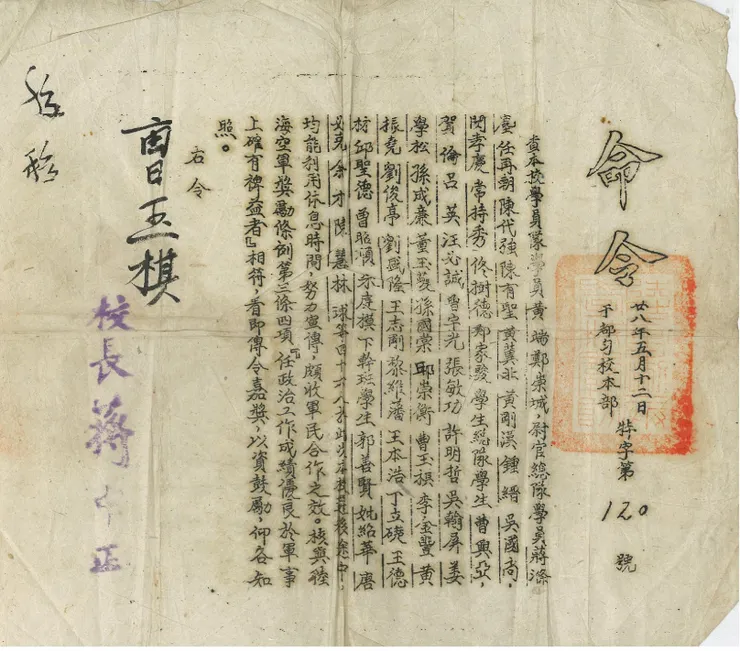 命令
廿八年五月十二日
于都匀校本部
特字第120號
查本校學員隊學員黃 端鄭崇城,尉官總隊學員蔣滌
任再朝陳代強陳育聖黃冀北黃剛漢鍾縉 吳國尚,
閔孝慶常持秀佟樹德鄭家駿學生總隊學生曹興亞,
賀倫呂英汪必誠曹宇光張敏功許明哲吳翰屏姜
學松孫成康董玉 孫國棠 崇衡曹玉 李金 黃
振堯劉俊亭劉 隆王志剛黎維藩王本浩丁立 王德
邱聖德曾昭 模下幹班學生郭善賢 紹華唐
余才陳 林 球等四十六八
均能利用休息時間,努力宣傳,頗收軍民合作之效。核與陸
海空軍獎勵條例第三條四項『任政治工作成績優良於軍事
上確有裨益者』相符,着即傳令嘉獎,以資鼓勵,仰各知
照。
右令
曹玉棋
校長蔣中正